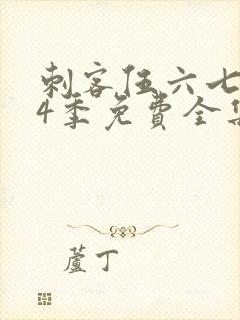 刺客伍六七
4季免费全集
蘆丁